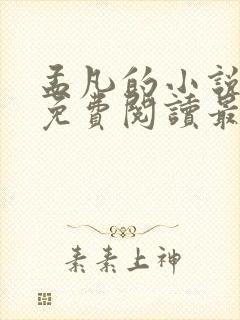 孟凡的小說
免費閱讀最
素素上神